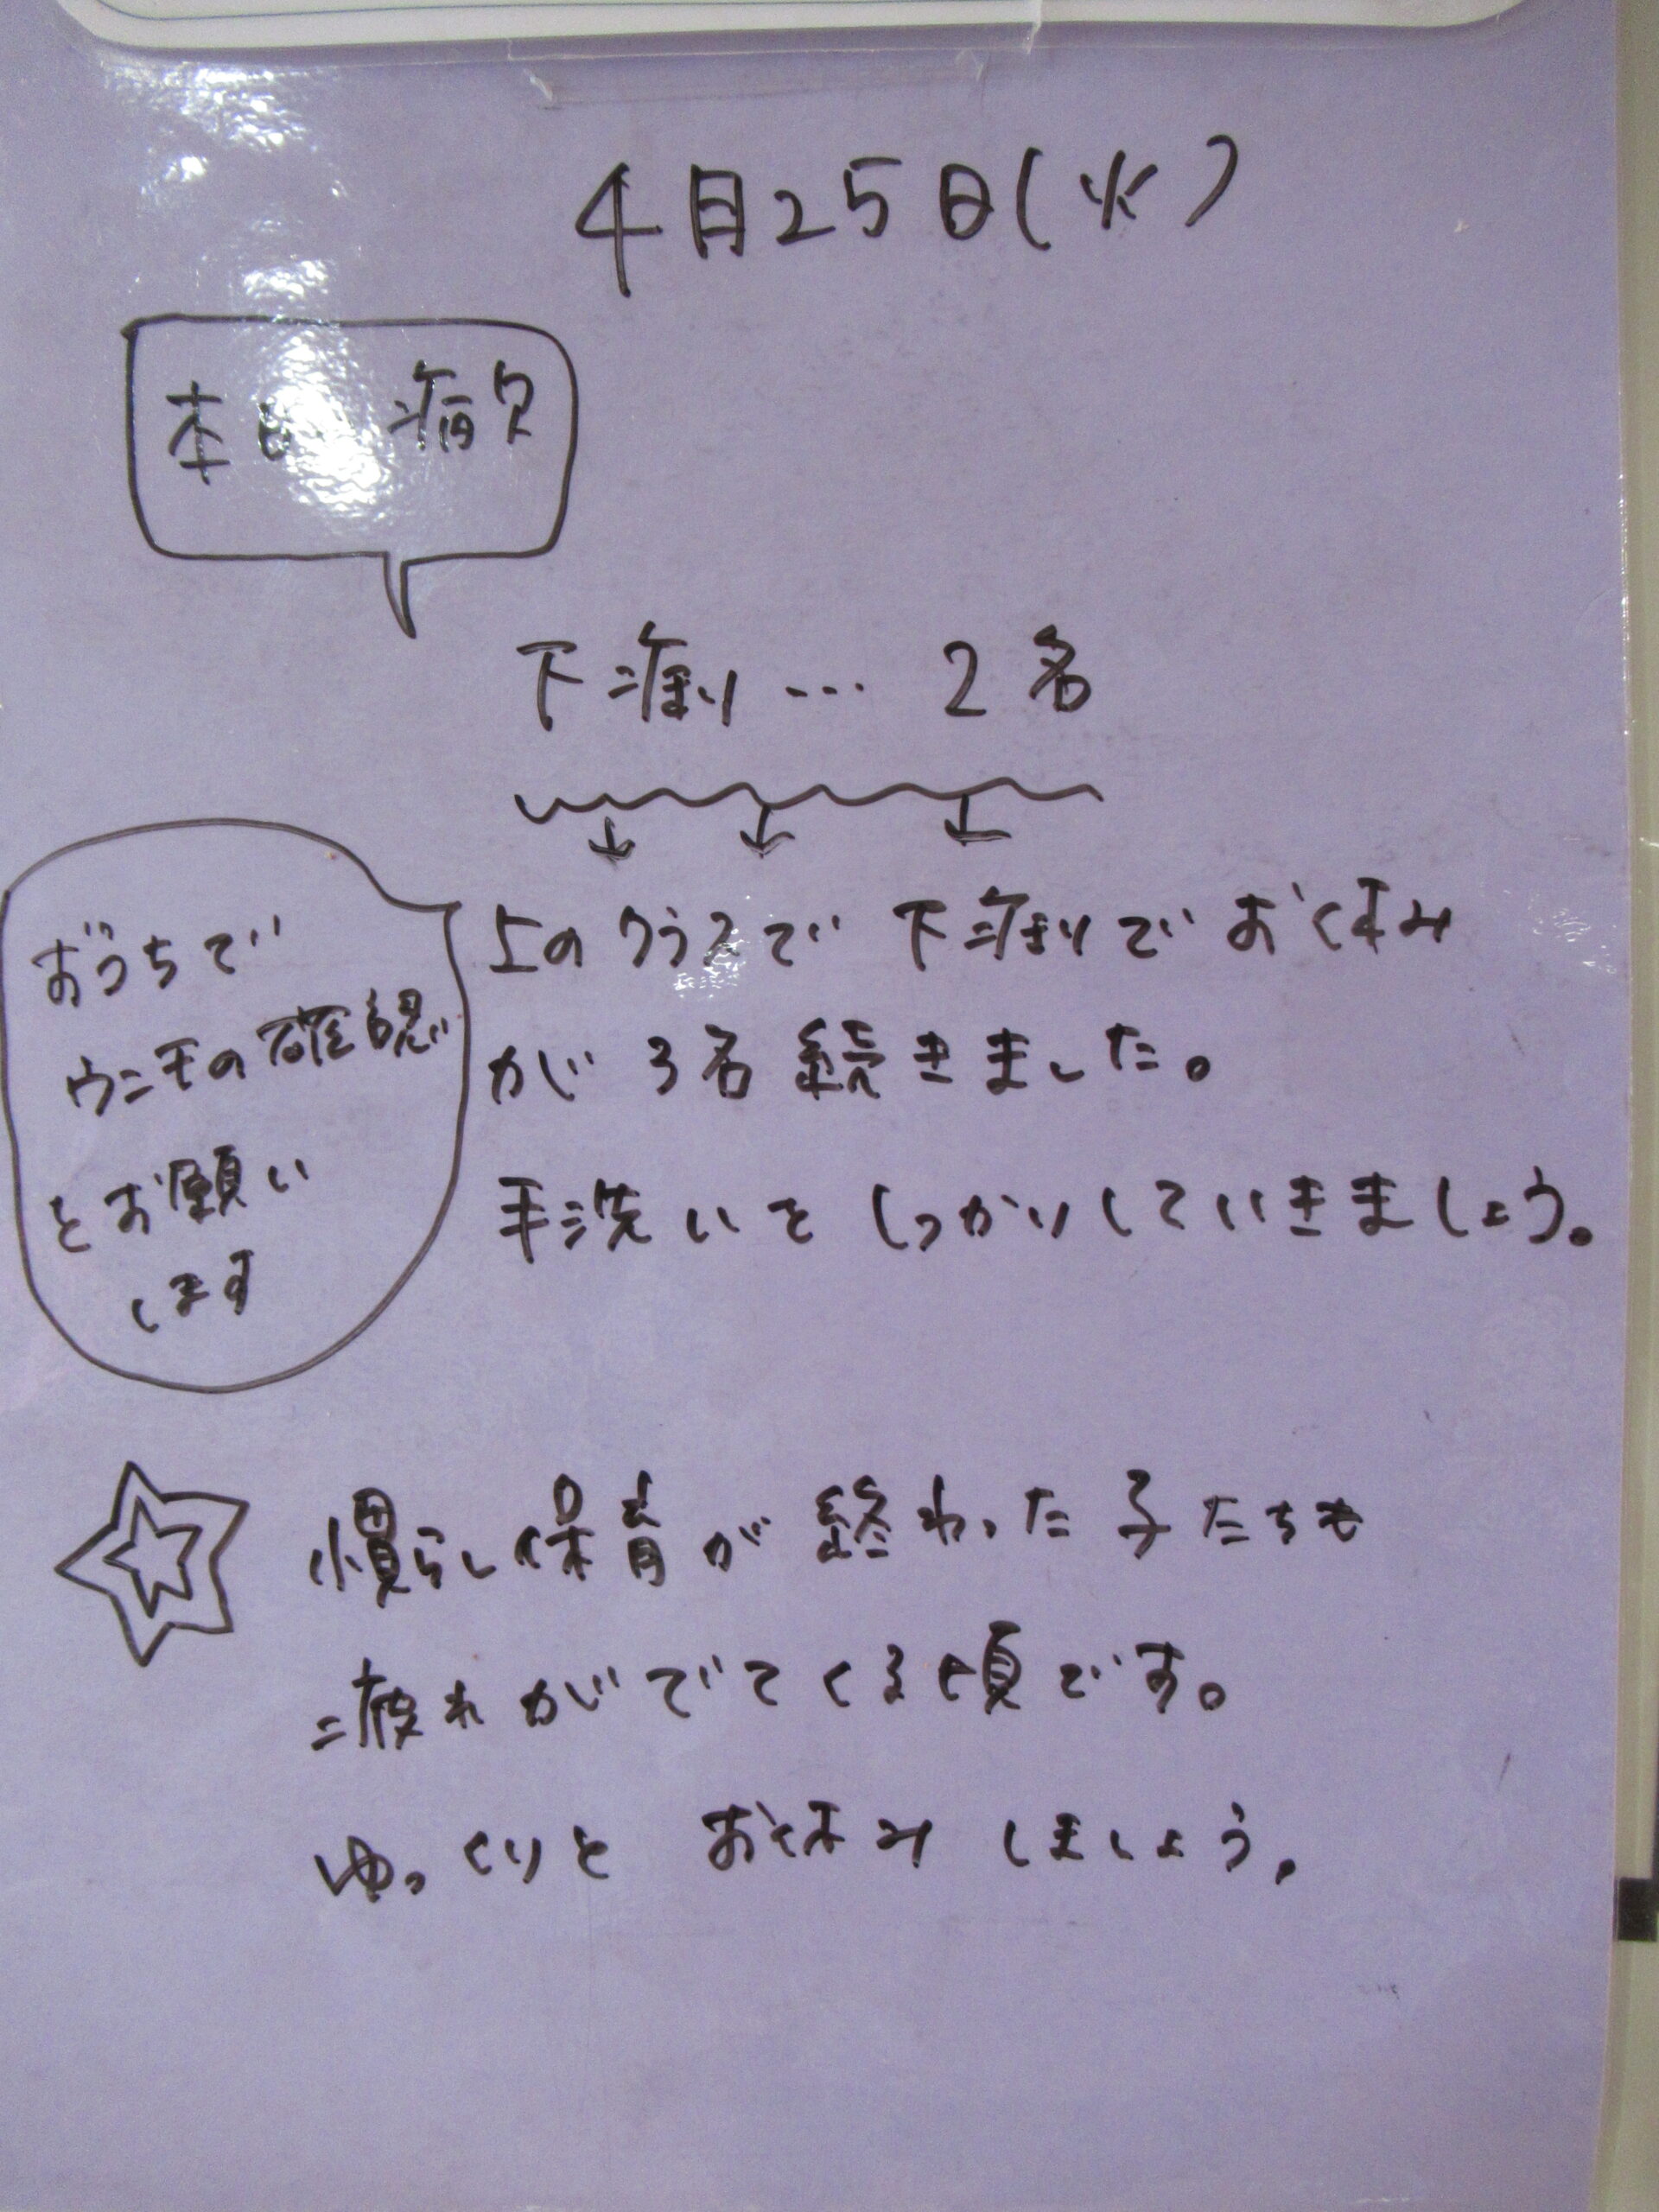 4月25日(火)
本日 病欠
下痢… 2名
上のクラスで 下痢で お休み
が 3名 続きました。
手洗いを しっかりしていきましょう。
おうちで
ウンチの確認
をお願い
します
慣らし保育が 終わった 子たちも
疲れがでてくる頃です。
ゆっくりと お休みしましょう。